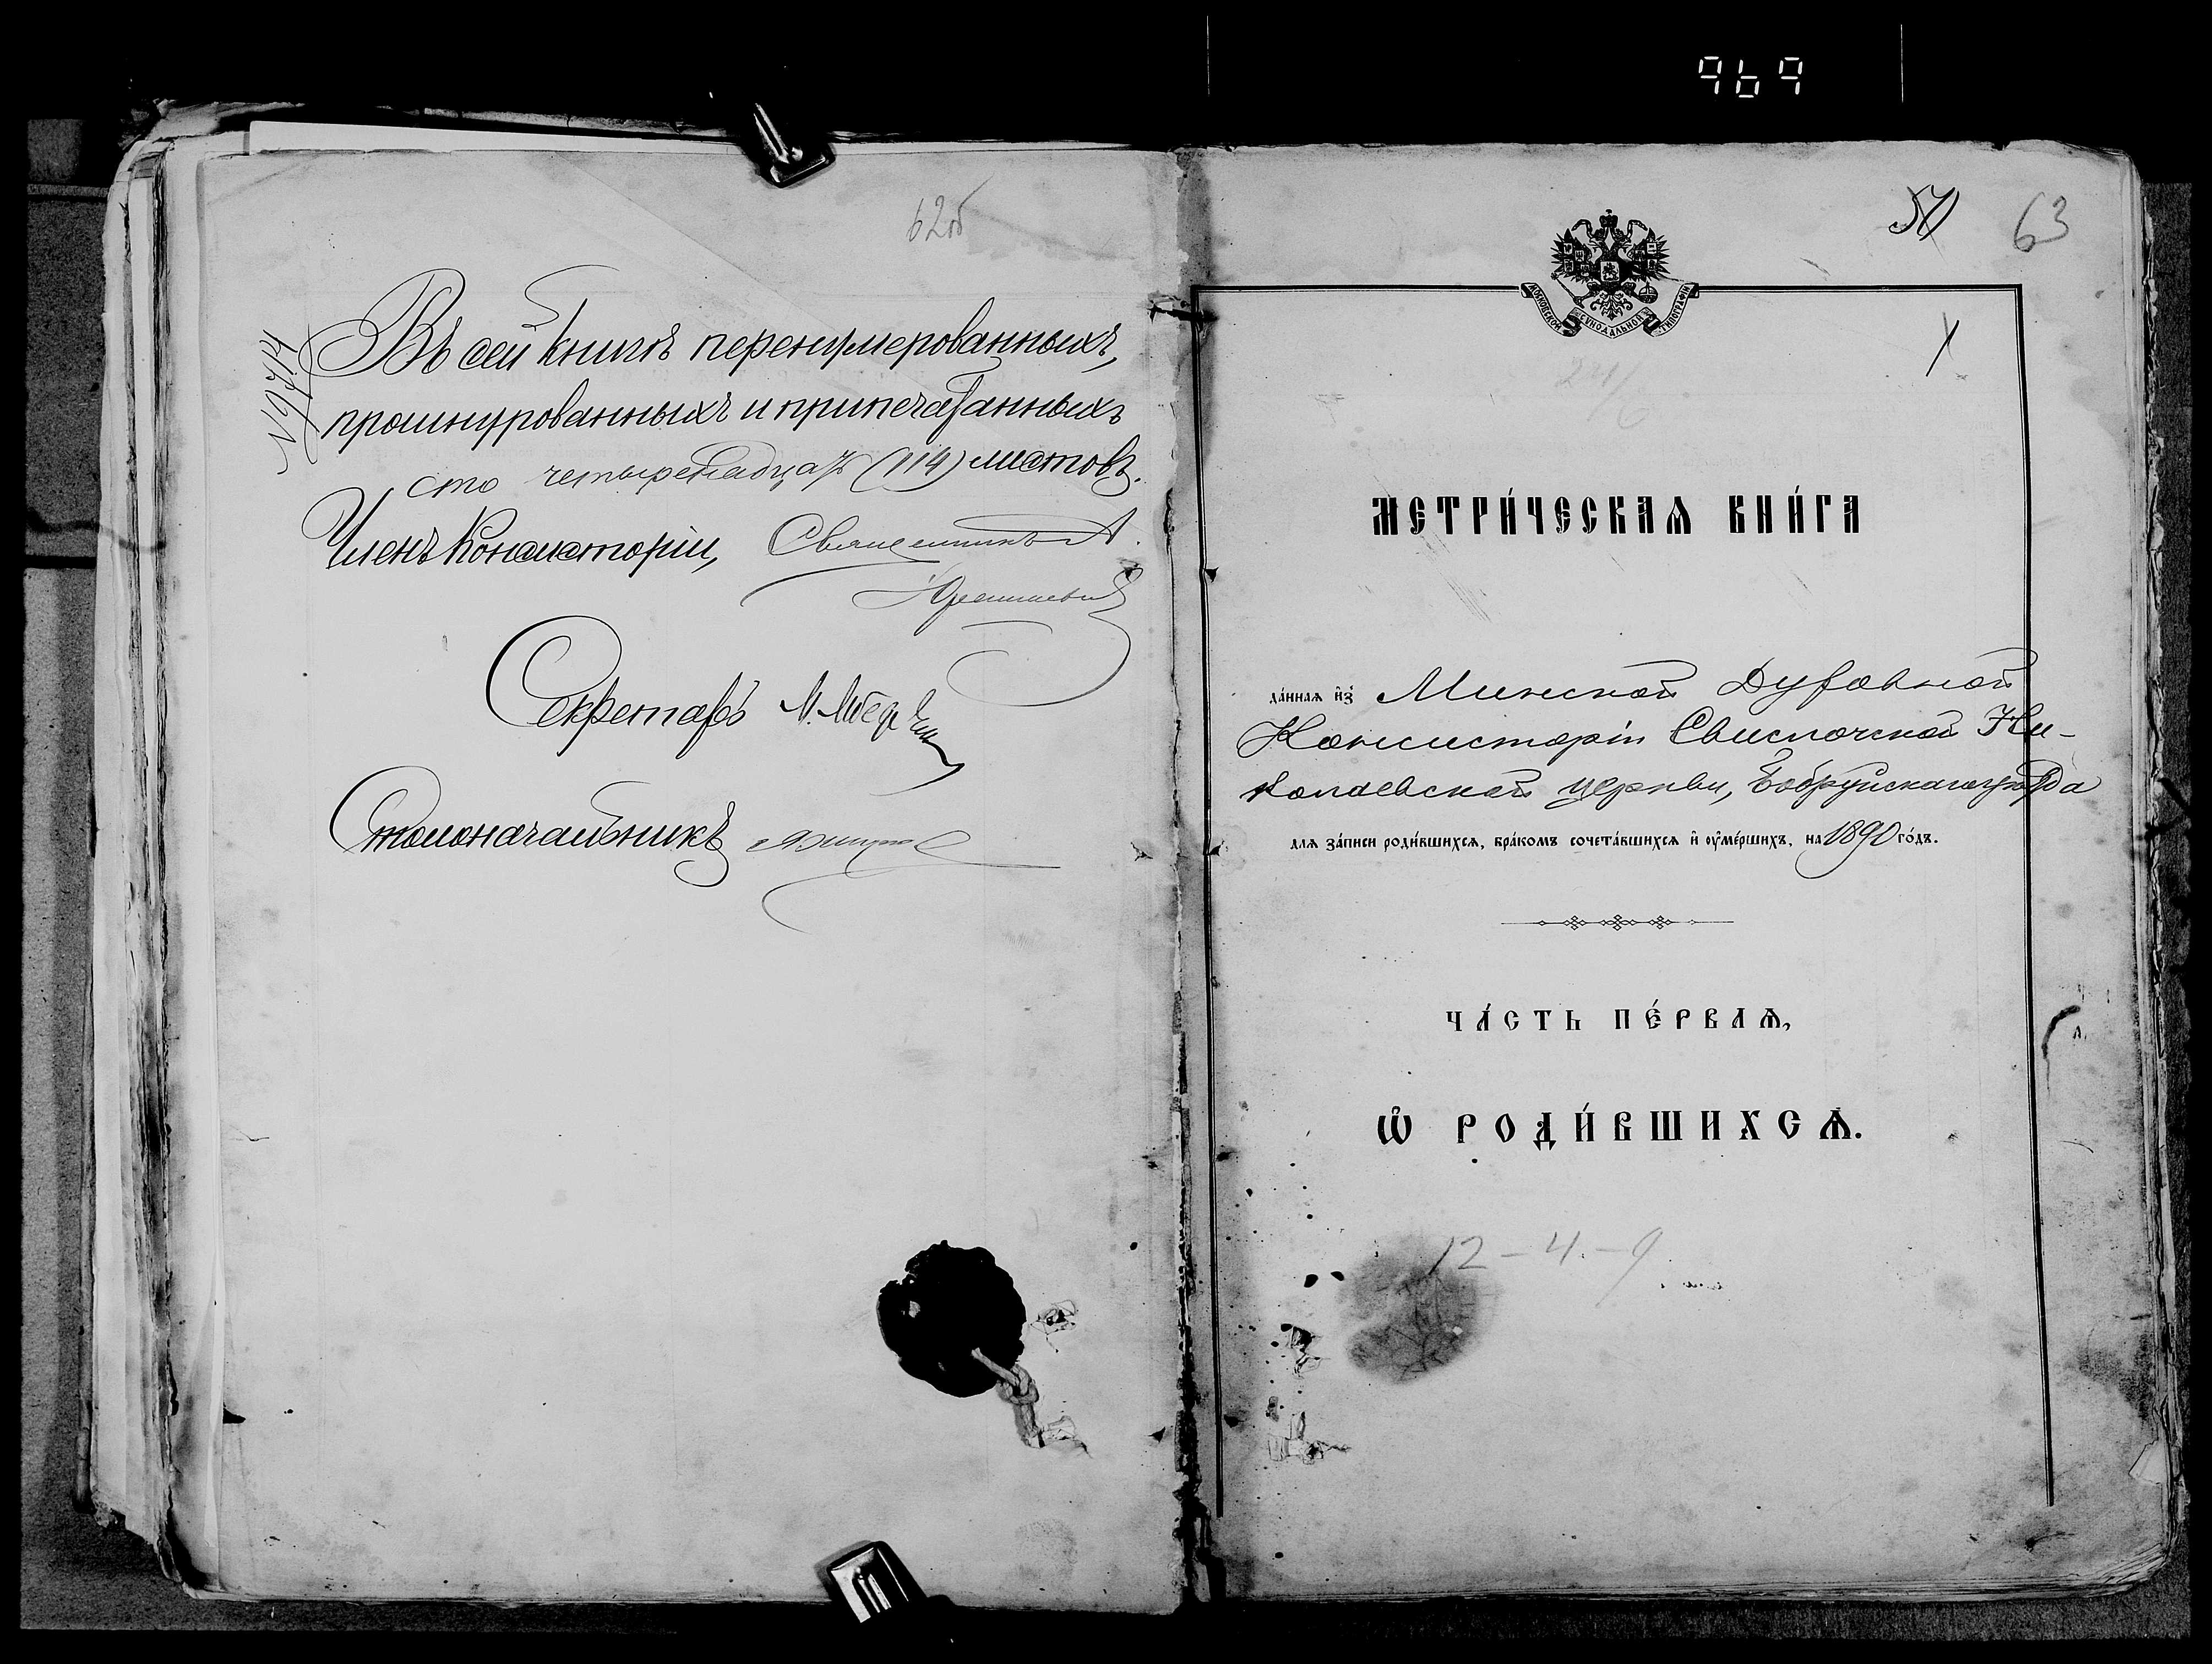 969
62об
№ 9714
Въ сей книгѣ перенумерованныхъ,
прошнурованныхъ и припечатанныхъ
сто четыренадцать (114) листовъ.
Членъ Консисторіи, Священникъ А.
Секретарь
Столоначальникъ
57 63
МОСКОВСКОЙ СѴНОДАЛЬНОЙ ТИПОГРАФІИ
24/6
МЕТРИ́ЧЕСКАѦ КНИ́ГА
да́ннаѧ и҆з̾ Минской Духовной
Консисторіи Свислочской Ни-
колаевской церкви, Бобруйскаго уѣзда
для за́писи роди́вшихсѧ, бра́комъ сочета́вшихсѧ и҆ оу҆ме́ршихъ, на 1890 го́дъ.
ЧА́СТЬ ПЕ́РВАѦ,
Ѡ҆ РОДИ́ВШИХСѦ.
12-4-9